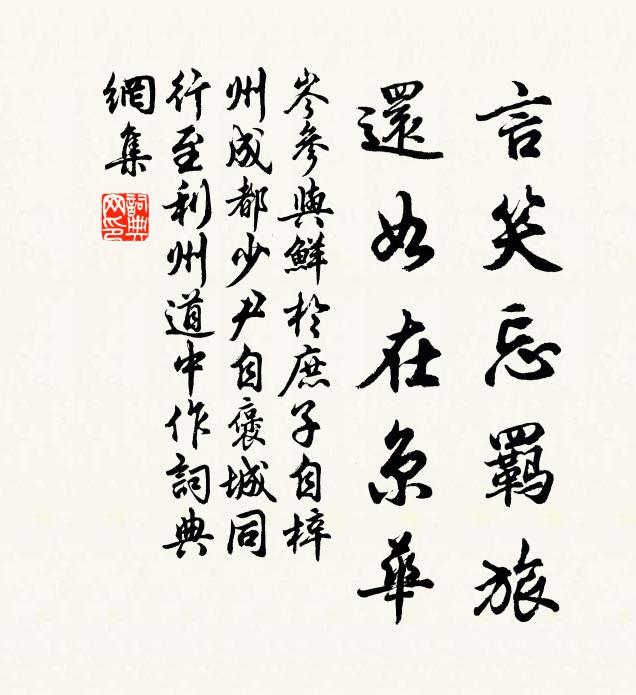 言笑忘羈旅
還如在京華
岑參與鮮於庶子自梓
州成都少尹自褒城同
行至利州道中作詞典
網集
詞典
网印